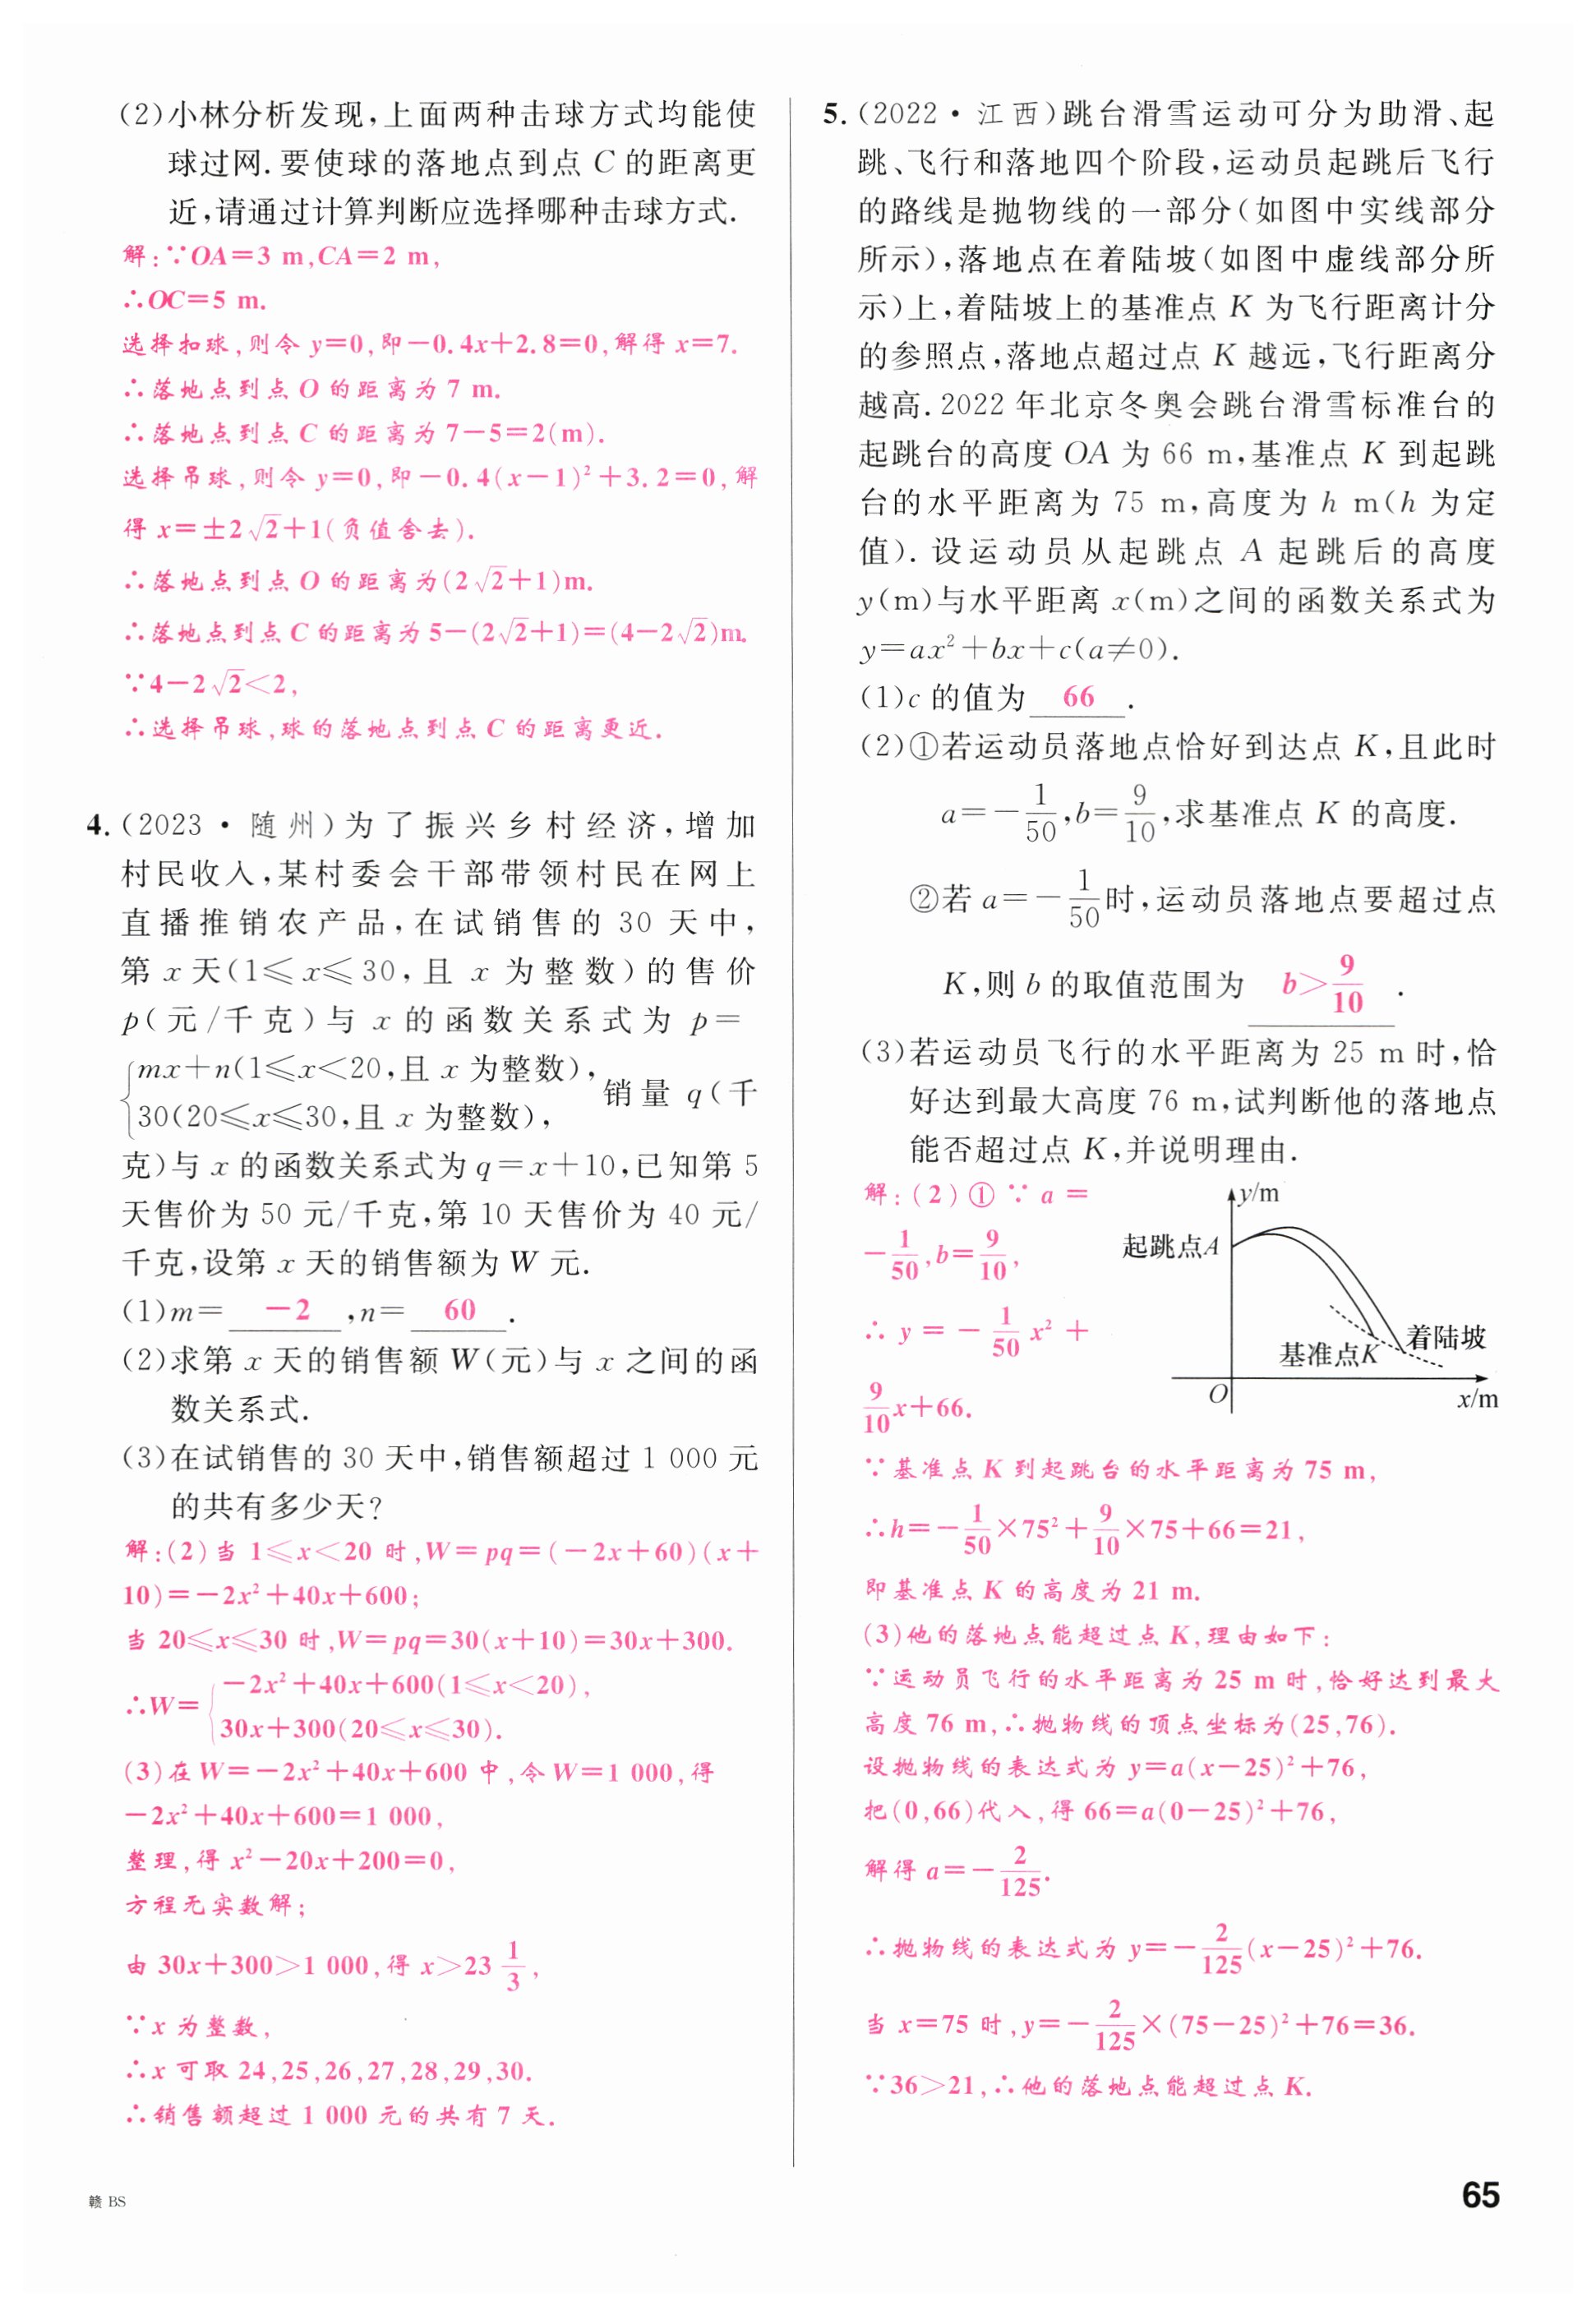 (2)小林分析发现,上面两种击球方式均能使
球过网.要使球的落地点到点 C 的距离更
近,请通过计算判断应选择哪种击球方式.
解:∵OA=3 m,CA=2 m,
∴OC=5 m.
选择扣球,则令 y=0,即-0.4x+2.8=0,解得 x=7.
∴落地点到点 O 的距离为 7 m.
∴落地点到点 C 的距离为 7-5=2(m).
选择吊球,则令 y=0,即-0.4(x-1)²+3.2=0,解
得 x=±2√2+1(负值舍去).
∴落地点到点 O 的距离为(2√2+1)m.
∴落地点到点 C 的距离为 5-(2√2+1)=(4-2√2)m.
∵4-2√2<2,
∴选择吊球,球的落地点到点 C 的距离更近.
4.(2023·随州)为了振兴乡村经济,增加
村民收入,某村委会干部带领村民在网上
直播推销农产品,在试销售的 30 天中,
第 x 天(1≤x≤30,且 x 为整数)的售价
p(元/千克)与 x 的函数关系式为 p=
{mx+n(1≤x<20,且 x 为整数),
30(20≤x≤30,且 x 为整数), 销量 q(千
克)与 x 的函数关系式为 q=x+10,已知第 5
天售价为 50 元/千克,第 10 天售价为 40 元/
千克,设第 x 天的销售额为 W 元.
(1)m= -2 ,n= 60 .
(2)求第 x 天的销售额 W(元)与 x 之间的函
数关系式.
(3)在试销售的 30 天中,销售额超过 1 000 元
的共有多少天?
解:(2)当 1≤x<20 时,W=pq=(-2x+60)(x+
10)=-2x²+40x+600;
当 20≤x≤30 时,W=pq=30(x+10)=30x+300.
∴W={-2x²+40x+600(1≤x<20),
30x+300(20≤x≤30).
(3)在 W=-2x²+40x+600 中,令 W=1 000,得
-2x²+40x+600=1 000,
整理,得 x²-20x+200=0,
方程无实数解;
由 30x+300>1 000,得 x>23 1/3,
∵x 为整数,
∴x 可取 24,25,26,27,28,29,30.
∴销售额超过 1 000 元的共有 7 天.
5.(2022·江西)跳台滑雪运动可分为助滑、起
跳、飞行和落地四个阶段,运动员起跳后飞行
的路线是抛物线的一部分(如图中实线部分
所示),落地点在着陆坡(如图中虚线部分所
示)上,着陆坡上的基准点 K 为飞行距离计分
的参照点,落地点超过点 K 越远,飞行距离分
越高.2022 年北京冬奥会跳台滑雪标准台的
起跳台的高度 OA 为 66 m,基准点 K 到起跳
台的水平距离为 75 m,高度为 h m(h 为定
值).设运动员从起跳点 A 起跳后的高度
y(m)与水平距离 x(m)之间的函数关系式为
y=ax²+bx+c(a≠0).
(1)c 的值为 66 .
(2)①若运动员落地点恰好到达点 K,且此时
a=-1/50,b=9/10,求基准点 K 的高度.
②若 a=-1/50时,运动员落地点要超过点
K,则 b 的取值范围为 b>9/10 .
(3)若运动员飞行的水平距离为 25 m 时,恰
好达到最大高度 76 m,试判断他的落地点
能否超过点 K,并说明理由.
解:(2)①∵a=
-1/50,b=9/10,
∴y=-1/50x²+
9/10x+66.
y/m
起跳点A
着陆坡
基准点K
O
x/m
∵基准点 K 到起跳台的水平距离为 75 m,
∴h=-1/50×75²+9/10×75+66=21,
即基准点 K 的高度为 21 m.
(3)他的落地点能超过点 K,理由如下:
∵运动员飞行的水平距离为 25 m 时,恰好达到最大
高度 76 m,∴抛物线的顶点坐标为(25,76).
设抛物线的表达式为 y=a(x-25)²+76,
把(0,66)代入,得 66=a(0-25)²+76,
解得 a=-2/125.
∴抛物线的表达式为 y=-2/125(x-25)²+76.
当 x=75 时,y=-2/125×(75-25)²+76=36.
∵36>21,∴他的落地点能超过点 K.
赣 BS
65